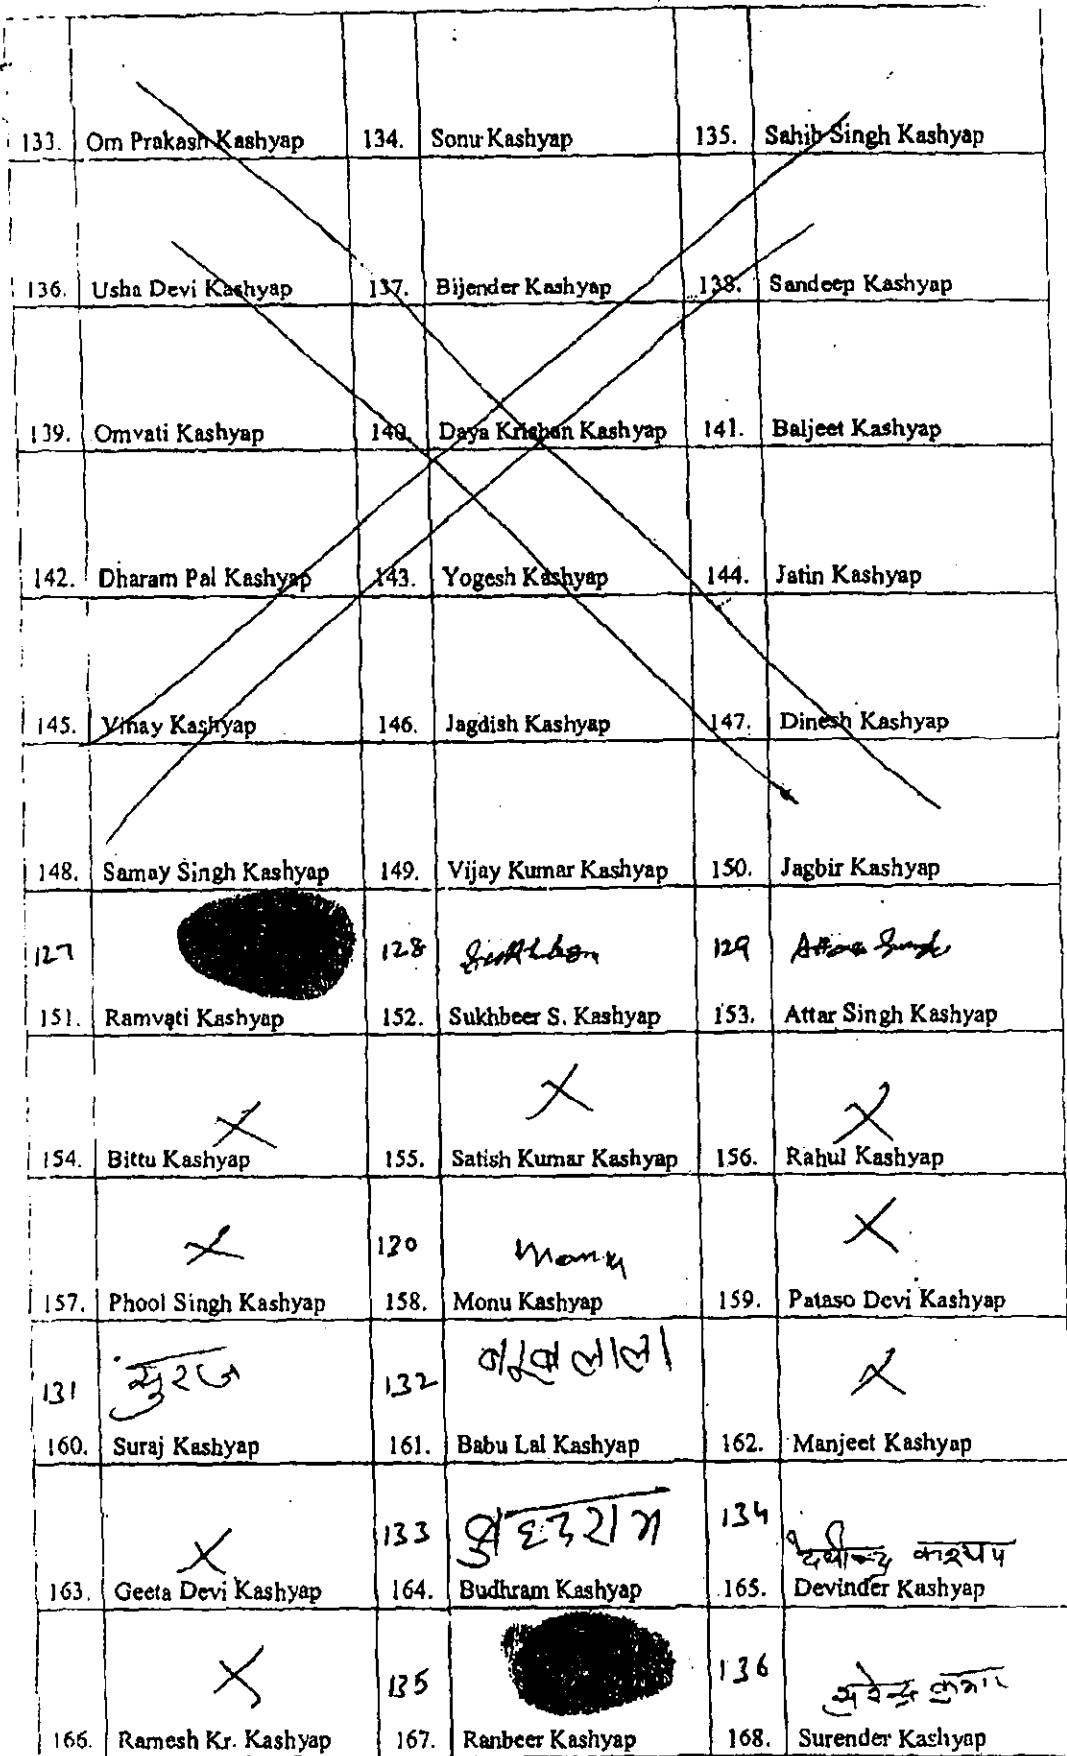 133. Om Prakash Kashyap 134. Sonu Kashyap 135. Sahib Singh Kashyap
136. Usha Devi Kashyap 137. Bijender Kashyap 138. Sandeep Kashyap
139. Omvati Kashyap 140. Daya Krishan Kashyap 141. Baljeet Kashyap
142. Dharam Pal Kashyap 143. Yogesh Kashyap 144. Jatin Kashyap
145. Vinay Kashyap 146. Jagdish Kashyap 147. Dinesh Kashyap
148. Samay Singh Kashyap 149. Vijay Kumar Kashyap 150. Jagbir Kashyap
127 128 129
151. Ramvati Kashyap 152. Sukhbeer S. Kashyap 153. Attar Singh Kashyap
154. Bittu Kashyap 155. Satish Kumar Kashyap 156. Rahul Kashyap
130 Monu
157. Phool Singh Kashyap 158. Monu Kashyap 159. Pataso Devi Kashyap
131 सुरज 132
160. Suraj Kashyap 161. Babu Lal Kashyap 162. Manjeet Kashyap
133 134 कश्यप
163. Geeta Devi Kashyap 164. Budhram Kashyap 165. Devinder Kashyap
135 136 सुरेन्द्र कुमार
166. Ramesh Kr. Kashyap 167. Ranbeer Kashyap 168. Surender Kashyap